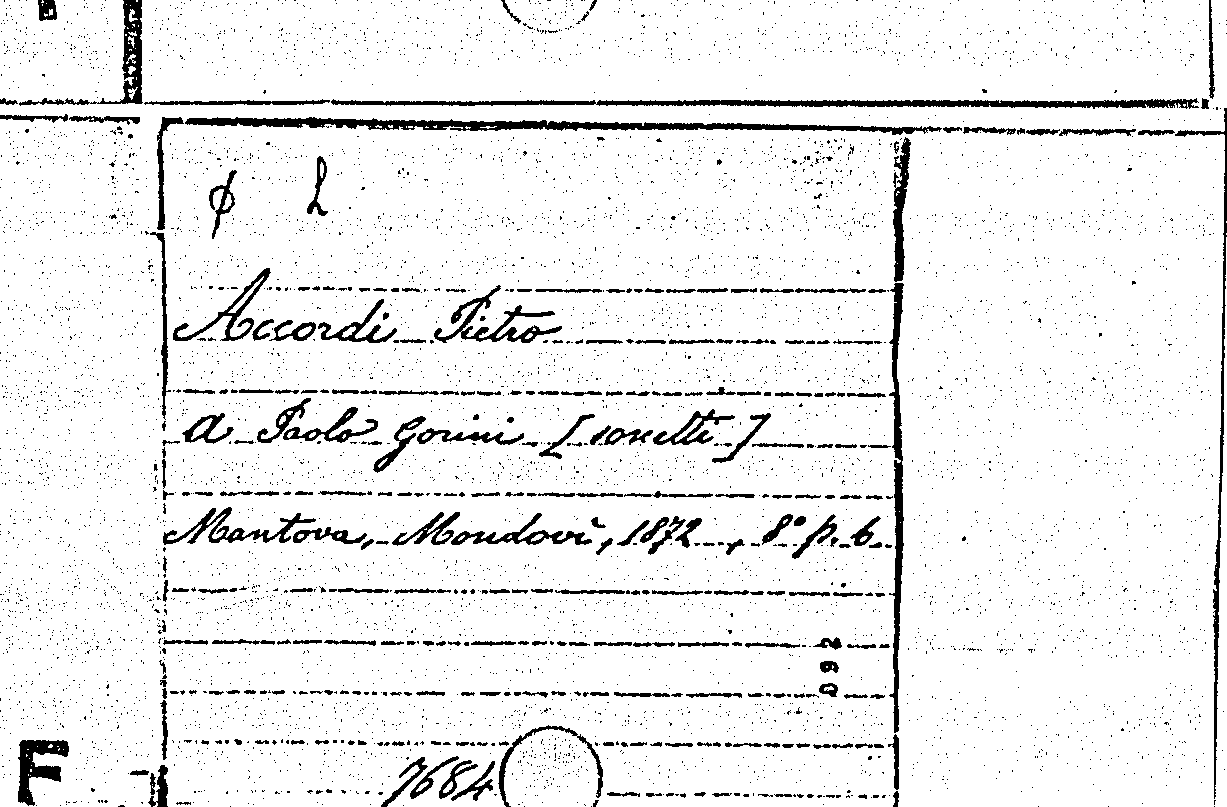 φ L
Accordi Pietro
a Paolo Gorini [sonetti]
Mantova, Mondovì, 1872, 8° p. 6.
D92
7684
F